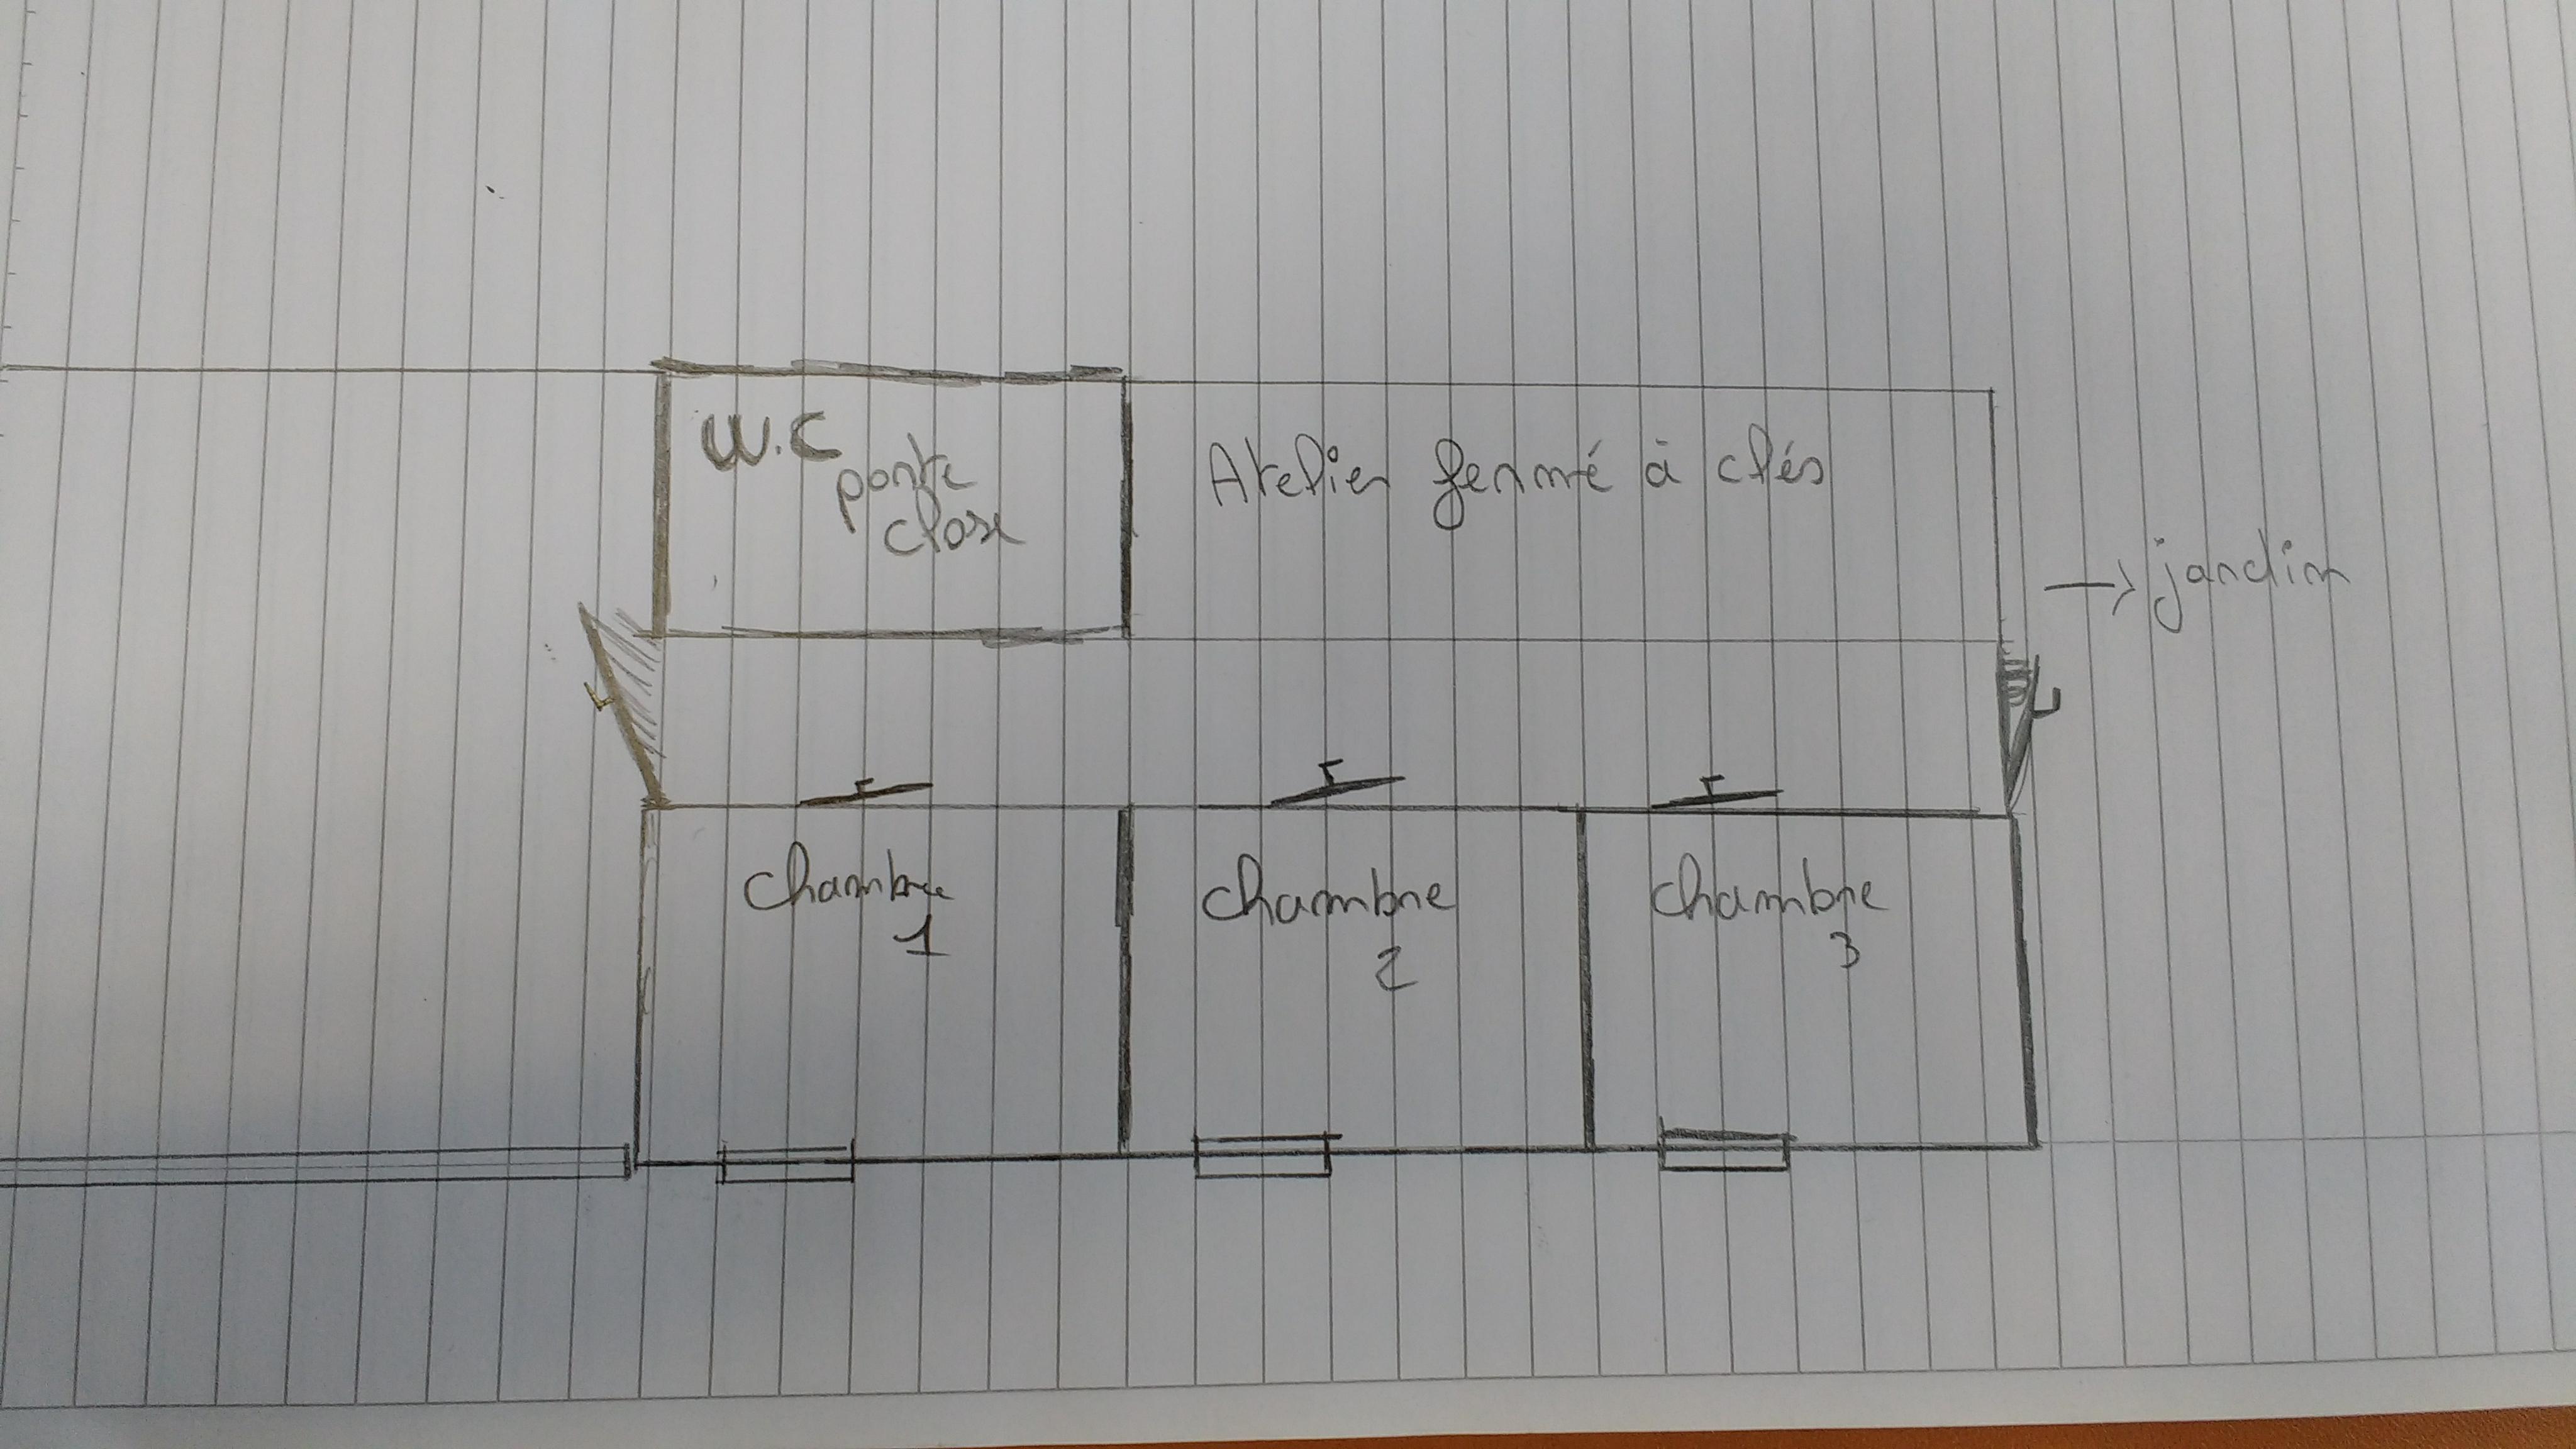 W.C
porte
close
Atelier fermé à clés
→ jardin
chambre
1
chambre
2
chambre
3